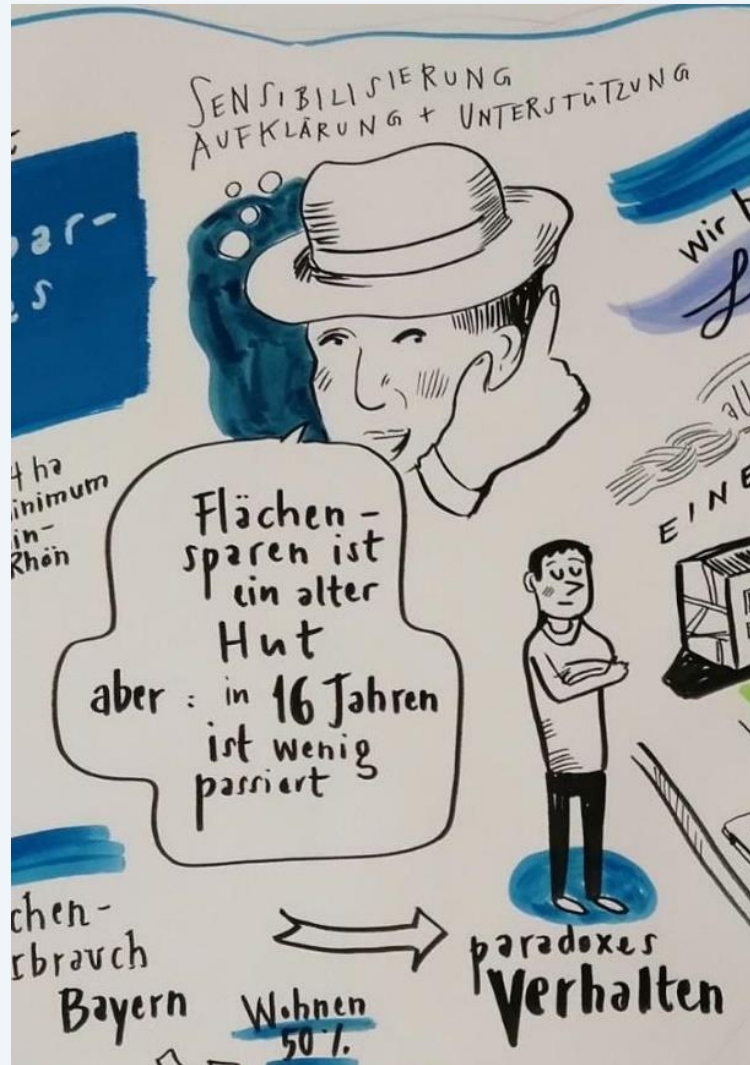 SENSIBILISIERUNG
AUFKLÄRUNG + UNTERSTÜTZUNG
wir
4 ha
Rhön
Flächen-
sparen ist
ein alter
Hut
aber : in 16 Jahren
ist wenig
passiert
EINE
Bayern
Wohnen
50%
paradoxes
Verhalten